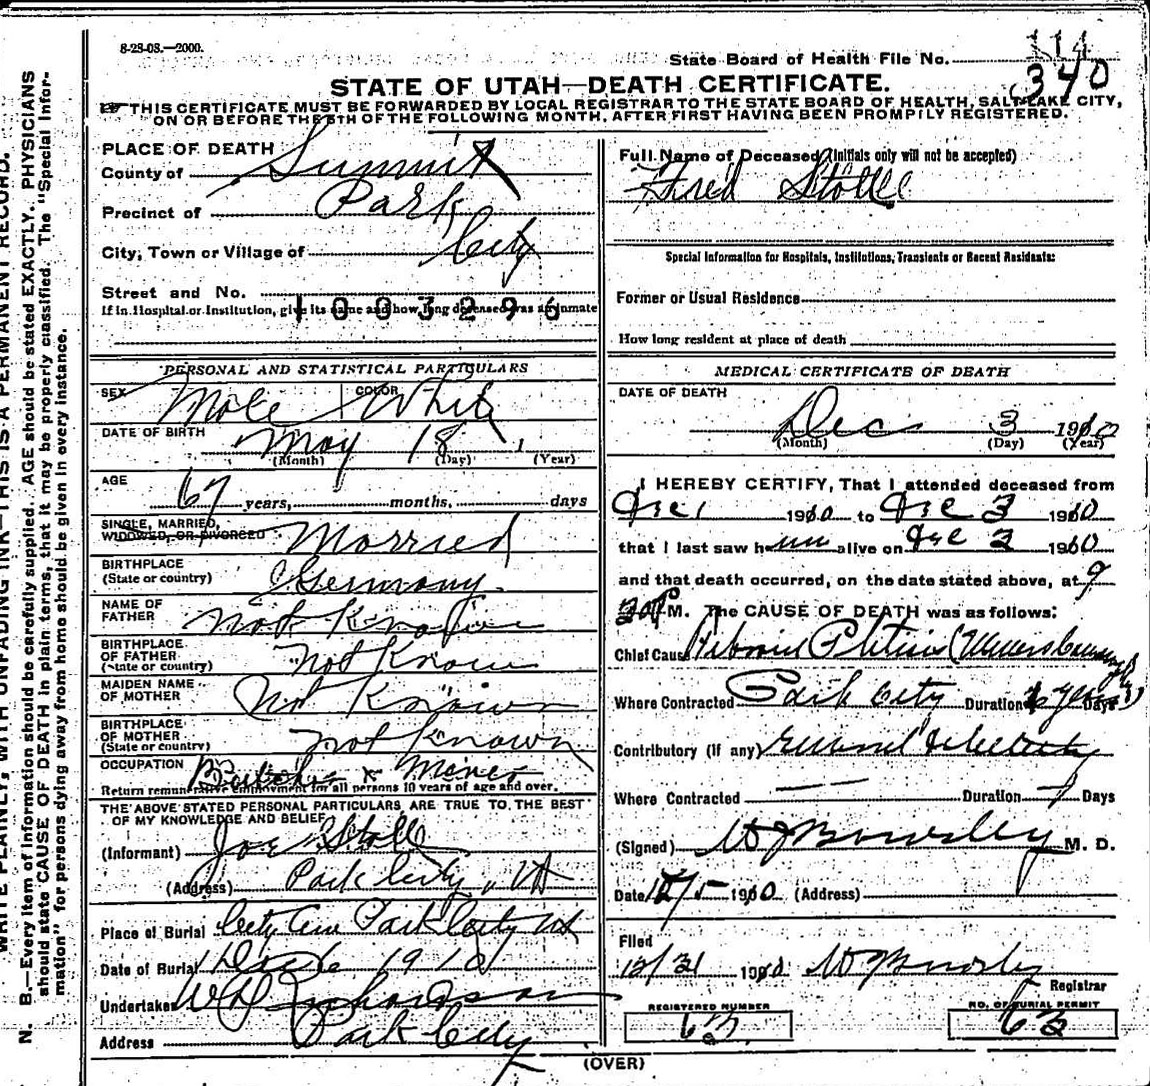 8-28-08.—2000.
State Board of Health File No. 114
340
STATE OF UTAH—DEATH CERTIFICATE.
THIS CERTIFICATE MUST BE FORWARDED BY LOCAL REGISTRAR TO THE STATE BOARD OF HEALTH, SALT LAKE CITY,
ON OR BEFORE THE 5TH OF THE FOLLOWING MONTH, AFTER FIRST HAVING BEEN PROMPTLY REGISTERED.
WRITE PLAINLY, WITH UNFADING INK—THIS IS A PERMANENT RECORD.
N. B.—Every item of information should be carefully supplied. AGE should be stated EXACTLY. PHYSICIANS
should state CAUSE OF DEATH in plain terms, that it may be properly classified. The "Special Infor-
mation" for persons dying away from home should be given in every instance.
PLACE OF DEATH
County of Summit
Precinct of Park
City, Town or Village of City
Street and No.
1003296
If in Hospital or Institution, give its name and how long deceased was an inmate
PERSONAL AND STATISTICAL PARTICULARS
SEX Male COLOR White
DATE OF BIRTH May 18
(Month) (Day) (Year)
AGE 67 years, months, days
SINGLE, MARRIED,
WIDOWED, OR DIVORCED Married
BIRTHPLACE
(State or country) Germany.
NAME OF
FATHER Not Known
BIRTHPLACE
OF FATHER
(State or country) Not Known
MAIDEN NAME
OF MOTHER Not Known
BIRTHPLACE
OF MOTHER
(State or country) Not Known
OCCUPATION Miner
Return remunerative employment for all persons 10 years of age and over.
THE ABOVE STATED PERSONAL PARTICULARS ARE TRUE TO THE BEST
OF MY KNOWLEDGE AND BELIEF
(Informant) Joe Stoll
(Address) Park City, Ut
Place of Burial City Cem Park City Ut
Date of Burial 1910
Undertaker Richardson
Address Park City
Full Name of Deceased (Initials only will not be accepted)
Fred Stolle
Special Information for Hospitals, Institutions, Transients or Recent Residents:
Former or Usual Residence
How long resident at place of death
MEDICAL CERTIFICATE OF DEATH
DATE OF DEATH
Dec 3 1910
(Month) (Day) (Year)
I HEREBY CERTIFY, That I attended deceased from
Dec 1 1910 to Dec 3 1910
that I last saw him alive on Dec 2 1910
and that death occurred, on the date stated above, at 9
M. The CAUSE OF DEATH was as follows:
Chief Cause (Miners
Where Contracted Park City Duration years Days
Contributory (if any) General debility
Where Contracted Duration Days
(Signed) M. D.
Date 12/5 1910 (Address)
Filed
12/31 1910 Registrar
REGISTERED NUMBER
63
NO. OF BURIAL PERMIT
63
(OVER)